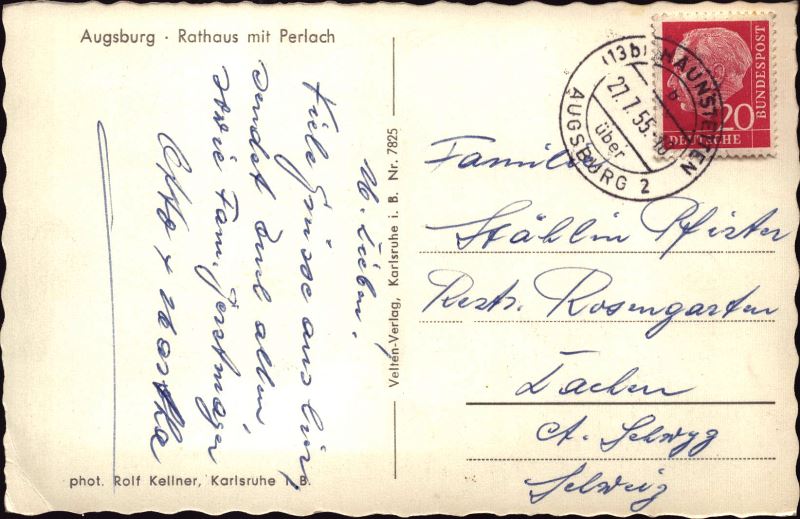 Augsburg · Rathaus mit Perlach
M. Lieben!
Viele Grüsse aus hier,
sendet Euch allen
sowie Fam. Gerstmayer
Otto + Martha
phot. Rolf Kellner, Karlsruhe i. B.
Velten-Verlag, Karlsruhe i. B. Nr. 7825
(13b) HAUNSTETTEN
b
27.7.55
über
AUGSBURG 2
20
DEUTSCHE
BUNDESPOST
Familie
Stählin Pfister
Restr. Rosengarten
Lachen
Ct. Schwyz
Schweiz